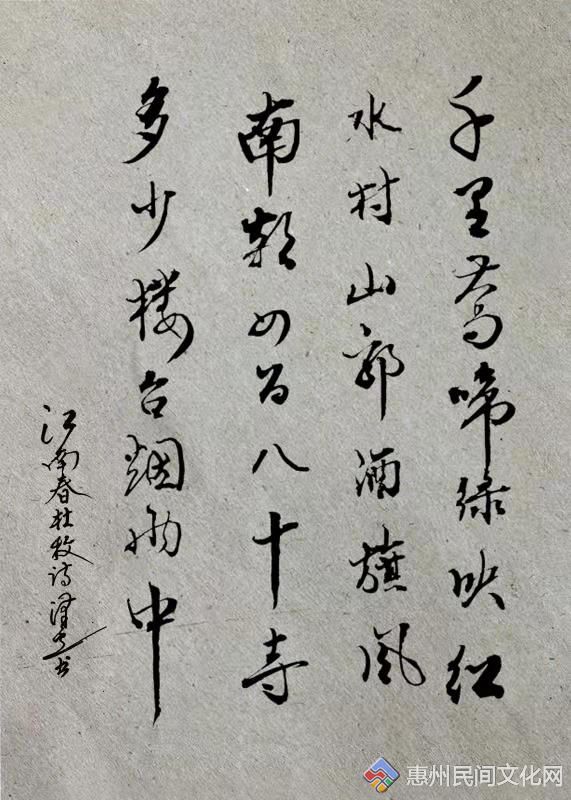 千里莺啼绿映红
水村山郭酒旗风
南朝四百八十寺
多少楼台烟雨中
江南春杜牧诗 书
惠州民间文化网